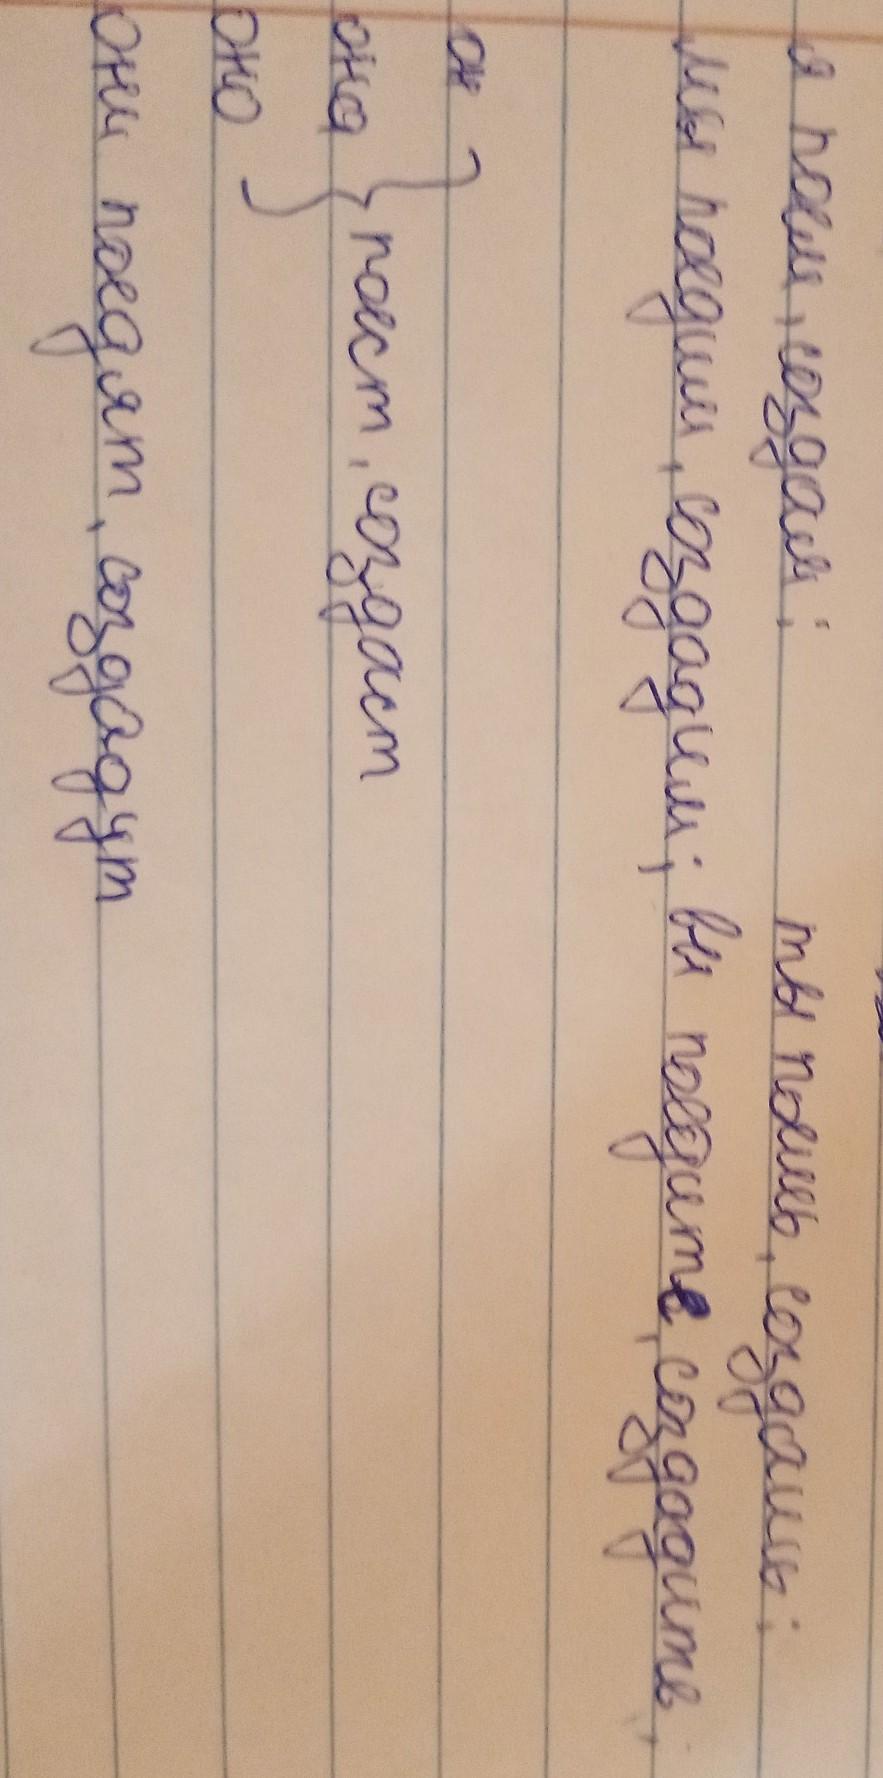 я поем, создам; ты поешь, создашь;
мы поедим, создадим; вы поедите, создадите;
он
она } поест, создаст
оно
они поедят, создадут